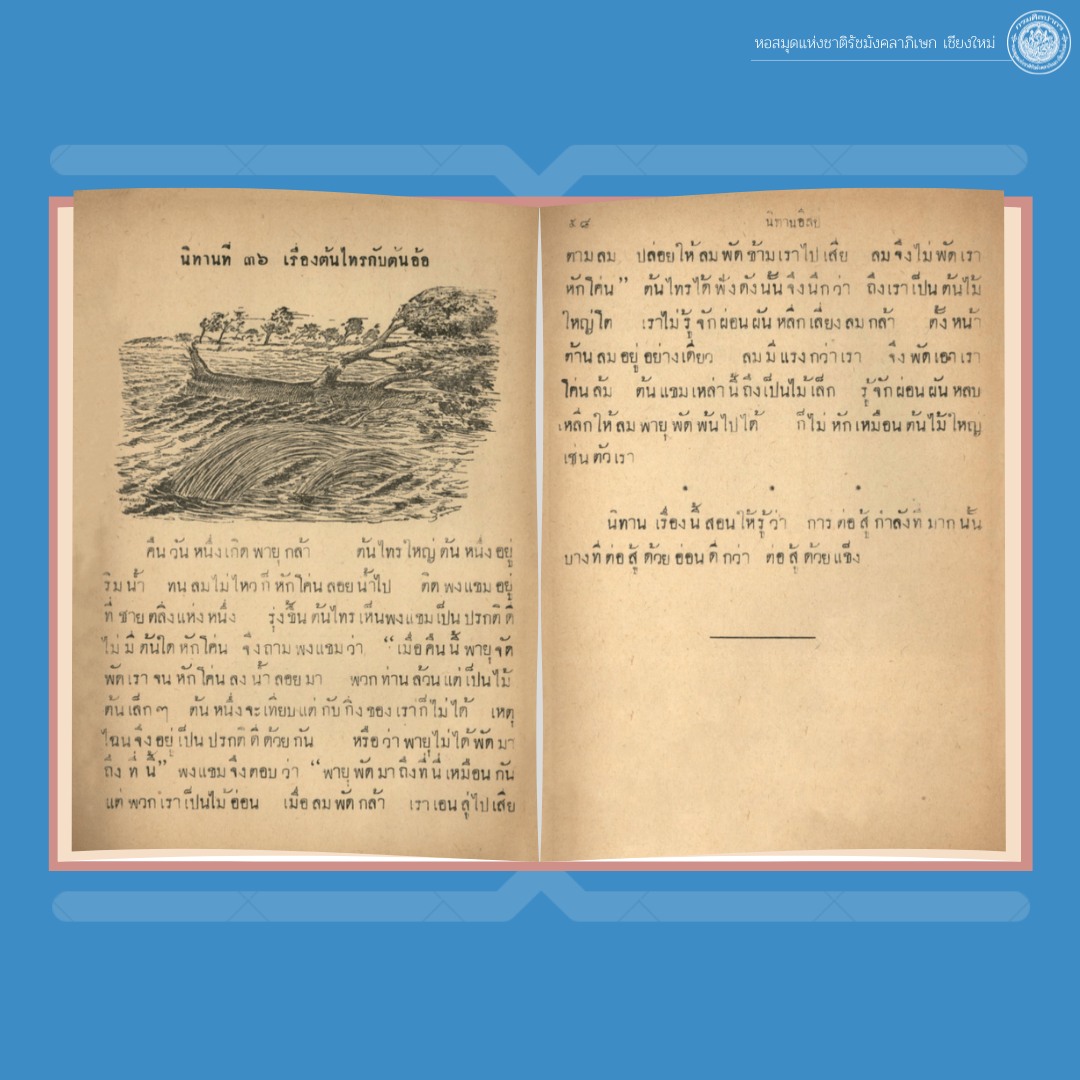 หอสมุดแห่งชาติรัชมังคลาภิเษก เชียงใหม่
นิทานที่ ๓๖ เรื่องต้นไทรกับต้นอ้อ
คืนวันหนึ่งเกิดพายุกล้า ต้นไทรใหญ่ต้นหนึ่งอยู่
ริมน้ำ ทนลมไม่ไหวก็หักโค่นลอยน้ำไป ติดพงแขมอยู่
ที่ชายตลิ่งแห่งหนึ่ง รุ่งขึ้นต้นไทรเห็นพงแขมเป็นปรกติดี
ไม่มีต้นใดหักโค่น จึงถามพงแขมว่า “เมื่อคืนนี้พายุจัด
พัดเราจนหักโค่นลงน้ำลอยมา พวกท่านล้วนแต่เป็นไม้
ต้นเล็กๆ ต้นหนึ่งจะเทียบแต่กับกิ่งของเราก็ไม่ได้ เหตุ
ไฉนจึงอยู่เป็นปรกติดีด้วยกัน หรือว่าพายุไม่ได้พัดมา
ถึงที่นี้” พงแขมจึงตอบว่า “พายุพัดมาถึงที่นี่เหมือนกัน
แต่พวกเราเป็นไม้อ่อน เมื่อลมพัดกล้า เราเอนลู่ไปเสีย
๕๘ นิทานอิสป
ตามลม ปล่อยให้ลมพัดข้ามเราไปเสีย ลมจึงไม่พัดเรา
หักโค่น” ต้นไทรได้ฟังดังนั้นจึงนึกว่า ถึงเราเป็นต้นไม้
ใหญ่โต เราไม่รู้จักผ่อนผันหลีกเลี่ยงลมกล้า ตั้งหน้า
ต้านลมอยู่อย่างเดียว ลมมีแรงกว่าเรา จึงพัดเอาเรา
โค่นล้ม ต้นแขมเหล่านี้ถึงเป็นไม้เล็ก รู้จักผ่อนผันหลบ
หลีกให้ลมพายุพัดพ้นไปได้ ก็ไม่หักเหมือนต้นไม้ใหญ่
เช่นตัวเรา
* * *
นิทานเรื่องนี้สอนให้รู้ว่า การต่อสู้กำลังที่มากนั้น
บางทีต่อสู้ด้วยอ่อนดีกว่า ต่อสู้ด้วยแข็ง